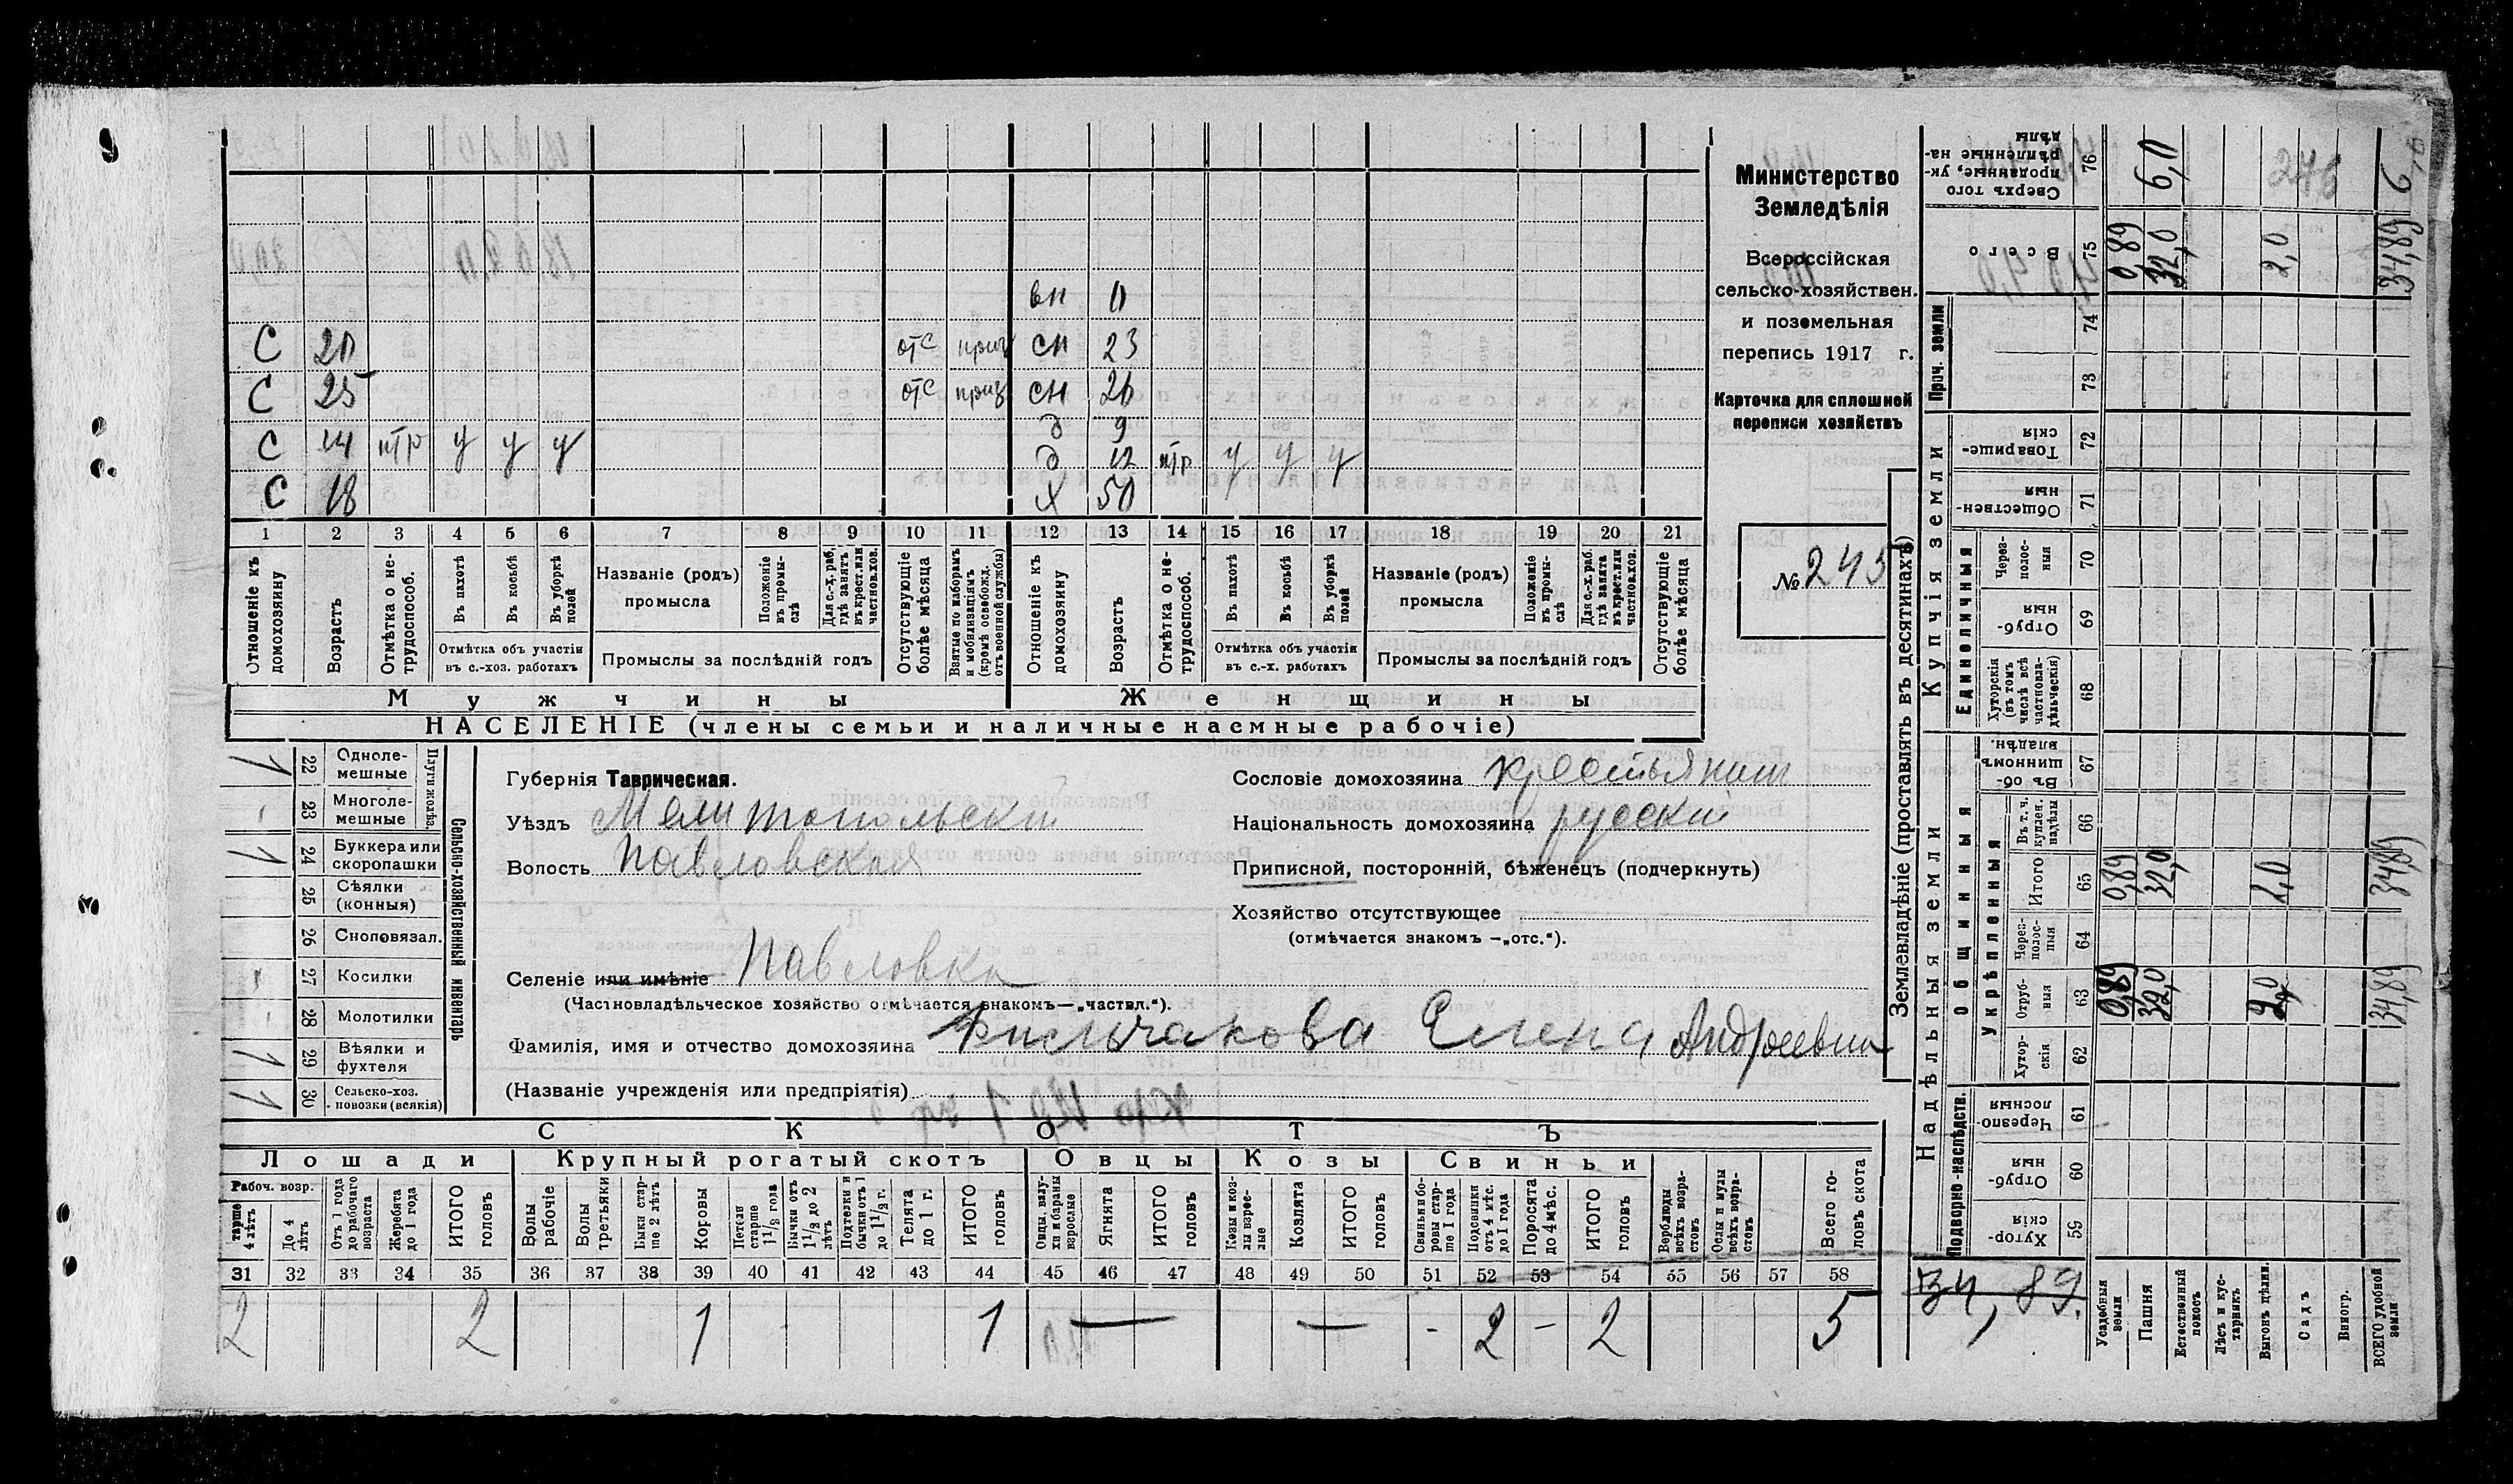 Министерство
Земледѣлія
Всероссійская
сельско-хозяйствен.
и поземельная
перепись 1917 г.
Карточка для сплошной
переписи хозяйствъ
№ 245
вн 0
С 20 отс приз сн 23
С 25 отс приз сн 26
д 9
С 14 нтр у у у д 12 нтр у у у
С 18 х 50
1 2 3 4 5 6 7 8 9 10 11 12 13 14 15 16 17 18 19 20 21
Отношеніе къ домохозяину
Возрастъ
Отмѣтка о не-трудоспособ.
Въ пахотѣ
Въ косьбѣ
Въ уборкѣ полей
Отмѣтка объ участіи
въ с.-хоз. работахъ
Названіе (родъ)
промысла
Положеніе въ промы-слѣ
Для с.-х. раб. гдѣ занятъ въ крест. или частнов. хоз.
Промыслы за послѣдній годъ
Отсутствующіе болѣе мѣсяца
Взятые по наборамъ и мобилизаціямъ (кромѣ освобожд. отъ военной службы)
Отношеніе къ домохозяину
Возрастъ
Отмѣтка о не-трудоспособ.
Въ пахотѣ
Въ косьбѣ
Въ уборкѣ полей
Отмѣтка объ участіи
въ с.-х. работахъ
Названіе (родъ)
промысла
Положеніе въ промы-слѣ
Для с.-х. раб. гдѣ занята въ крест. или частнов. хоз.
Промыслы за послѣдній годъ
Отсутствующіе болѣе мѣсяца
Мужчины Женщины
НАСЕЛЕНІЕ (члены семьи и наличные насмные рабочіе)
Сельско-хозяйственный инвентарь
Плуги желѣз.
22 Одноле-мешные 1
23 Многоле-мешные -
24 Буккера или скоропашки 1
25 Сѣялки (конныя)
26 Сноповязал.
27 Косилки
28 Молотилки -
29 Вѣялки и фухтеля 1
30 Сельско-хоз. повозки (всякія) 1
Губернія Таврическая.
Уѣздъ Мелитопольскій
Волость Павловская
Селеніе или имѣніе Павловка
(Частновладѣльческое хозяйство отмѣчается знакомъ—„частвл.“).
Фамилія, имя и отчество домохозяина Фильчакова Елена Андреевна
(Названіе учрежденія или предпріятія)
Сословіе домохозяина крестьянин
Національность домохозяина русскій
Приписной, посторонній, бѣженецъ (подчеркнуть)
Хозяйство отсутствующее
(отмѣчается знакомъ —„отс.“).
СКОТЪ
Лошади Крупный рогатый скотъ Овцы Козы Свиньи
Рабоч. возр.
тарше 4 лѣтъ
До 4 лѣтъ
Отъ 1 года до рабочаго возраста
Жеребята до 1 года
ИТОГО головъ
Волы рабочіе
Волы третьяки
Быки стар-ше 2 лѣтъ
Коровы
Нетели старше 1½ года
Бычки отъ 1½ до 2 лѣтъ
Подтелки и бычки отъ 1 до 1½ г.
Телята до 1 г.
ИТОГО головъ
Овцы, валу-хи и бараны взрослые
Ягнята
ИТОГО головъ
Козы и коз-лы взрос-лые
Козлята
ИТОГО головъ
Свиньи и бо-ровы стар-ше 1 года
Подсвинки отъ 4 мѣс. до 1 года
Поросята до 4 мѣс.
ИТОГО головъ
Верблюды всѣхъ возра-стовъ
Ослы и мулы всѣхъ возра-стовъ
Всего го-ловъ скота
31 32 33 34 35 36 37 38 39 40 41 42 43 44 45 46 47 48 49 50 51 52 53 54 55 56 57 58
2 2 1 - 1 — — - 2 - 2 5
Землевладѣніе (проставлять въ десятинахъ)
Надѣльныя земли
Купчія земли
Проч. земли
Общинныя
Укрѣпленныя
Единоличныя
Подворно-наслѣдств.
59 Хутор-скія
60 Отруб-ныя
61 Черезпо-лосныя
62 Хутор-скія
63 Отруб-ныя 0,89 32,0 2,0 34,89
64 Через-полос-ныя
65 Итого 0,89 32,0 2,0 34,89
66 Въ т. ч. куплен. надѣлы
67 Въ об-щинномъ владѣн.
68 Хуторскія (въ томъ числѣ всѣ частновла-дѣльческія)
69 Отруб-ныя
70 Через-полос-ныя
71 Обществен-ныя
72 Товарище-скія
73
74
75 Всего 0,89 32,0 2,0 34,89
76 Сверхъ того проданные, ук-рѣпленные на-дѣлы 6,0 6,0
276
34,89.
Усадебныя земли
Пашня
Естественный покосъ
Лѣсъ и кус-тарникъ
Выгонъ цѣлин.
Садъ
Виногр.
ВСЕГО удобной земли